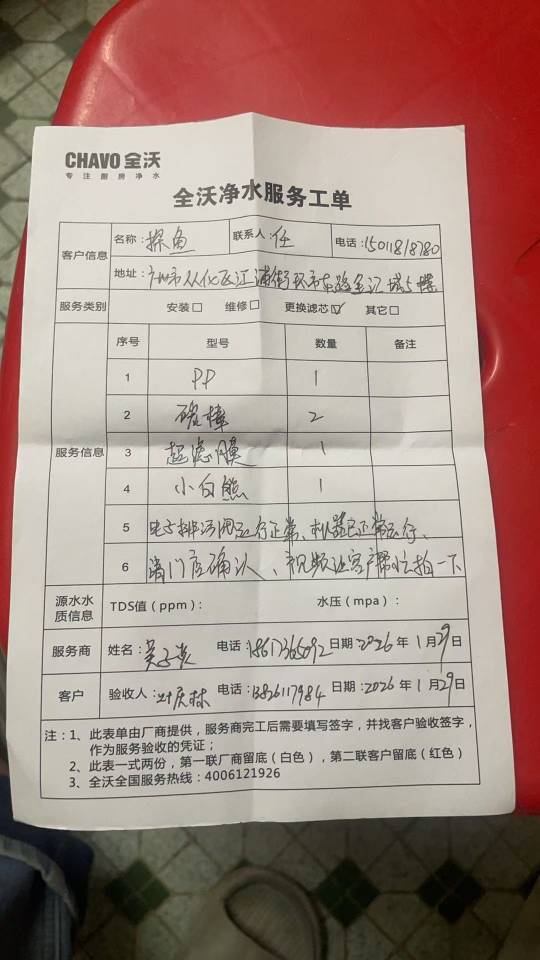 CHAVO 全沃
专注厨房净水
全沃净水服务工单
客户信息 名称：探鱼 联系人：任 电话：15011818780
地址：广州市从化区江浦街环市东路 汇城5楼
服务类别 安装□ 维修□ 更换滤芯☑ 其它□
服务信息 序号 型号 数量 备注
1 PP 1
2 碳棒 2
3 超滤膜 1
4 小白熊 1
5 电子排污阀运行正常、机器已正常运行、
6 请门店确认、视频让客户帮忙拍一下
源水水质信息 TDS值（ppm）： 水压（mpa）：
服务商 姓名：吴 电话： 日期：2026年1月29日
客户 验收人：叶庆林 电话： 日期：2026年1月29日
注：1、此表单由厂商提供，服务商完工后需要填写签字，并找客户验收签字，
作为服务验收的凭证；
2、此表一式两份，第一联厂商留底（白色），第二联客户留底（红色）
3、全沃全国服务热线：4006121926